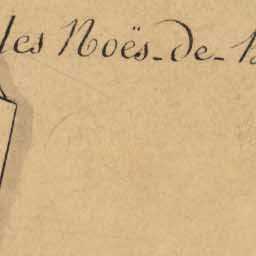 les Noës-de-